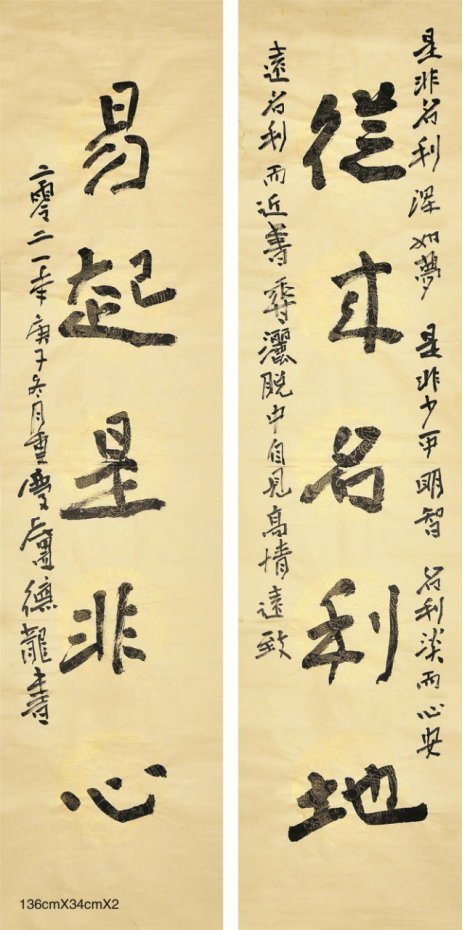 是非名利渾如夢 是非少平明智 名利淡而心安
從来名利地
遠名利而近善 尋灑脱中自見高情遠致
易起是非心
二零二一年庚子冬月重慶盧德龍書
136cmX34cmX2